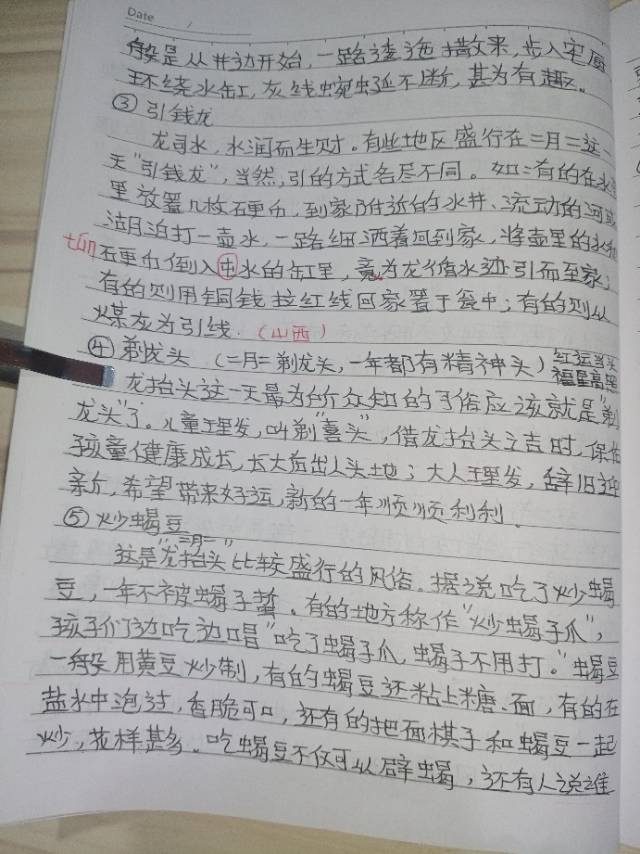 Date
般是从井边开始,一路逶迤撒来,步入宅厨
环绕水缸,灰线蜿蜒不断,甚为有趣。
③ 引钱龙
龙司水,水润而生财。有些地区盛行在二月二这一
天"引钱龙",当然,引的方式各尽不同。如:有的在水
里放置几枚硬币,到家附近的水井、流动的河或
湖泊打一壶水,一路细洒着回到家,将壶里的水和
硬币倒入屯水的缸里,意为龙循水迹引而至家;
tún
有的则用铜钱拉红线回家置于瓮中;有的则以
煤灰为引线.(山西)
④ 剃龙头 (二月二剃龙头,一年都有精神头)
红运当头
福星高照
龙抬头这一天最为所众知的习俗应该就是"剃
龙头"了。儿童理发,叫剃"喜头",借龙抬头之吉时,保佑
孩童健康成长,长大后出人头地;大人理发,辞旧迎
新,希望带来好运,新的一年顺顺利利。
⑤ 炒蝎豆
这是"二月二"龙抬头比较盛行的风俗.据说吃了炒蝎
豆,一年不被蝎子蜇。有的地方称作"炒蝎子爪",
孩子们边吃边唱"吃了蝎子爪,蝎子不用打。"蝎豆
一般用黄豆炒制,有的蝎豆还粘上糖、面,有的在
盐水中泡过,香脆可口,还有的把面棋子和蝎豆一起
炒,花样甚多。吃蝎豆不仅可以辟蝎,还有人说谁